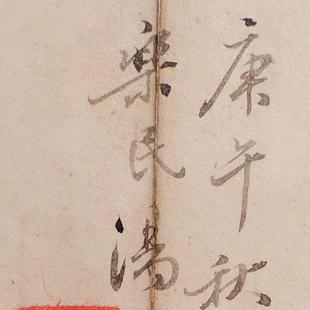 庚午秋
樂民湯